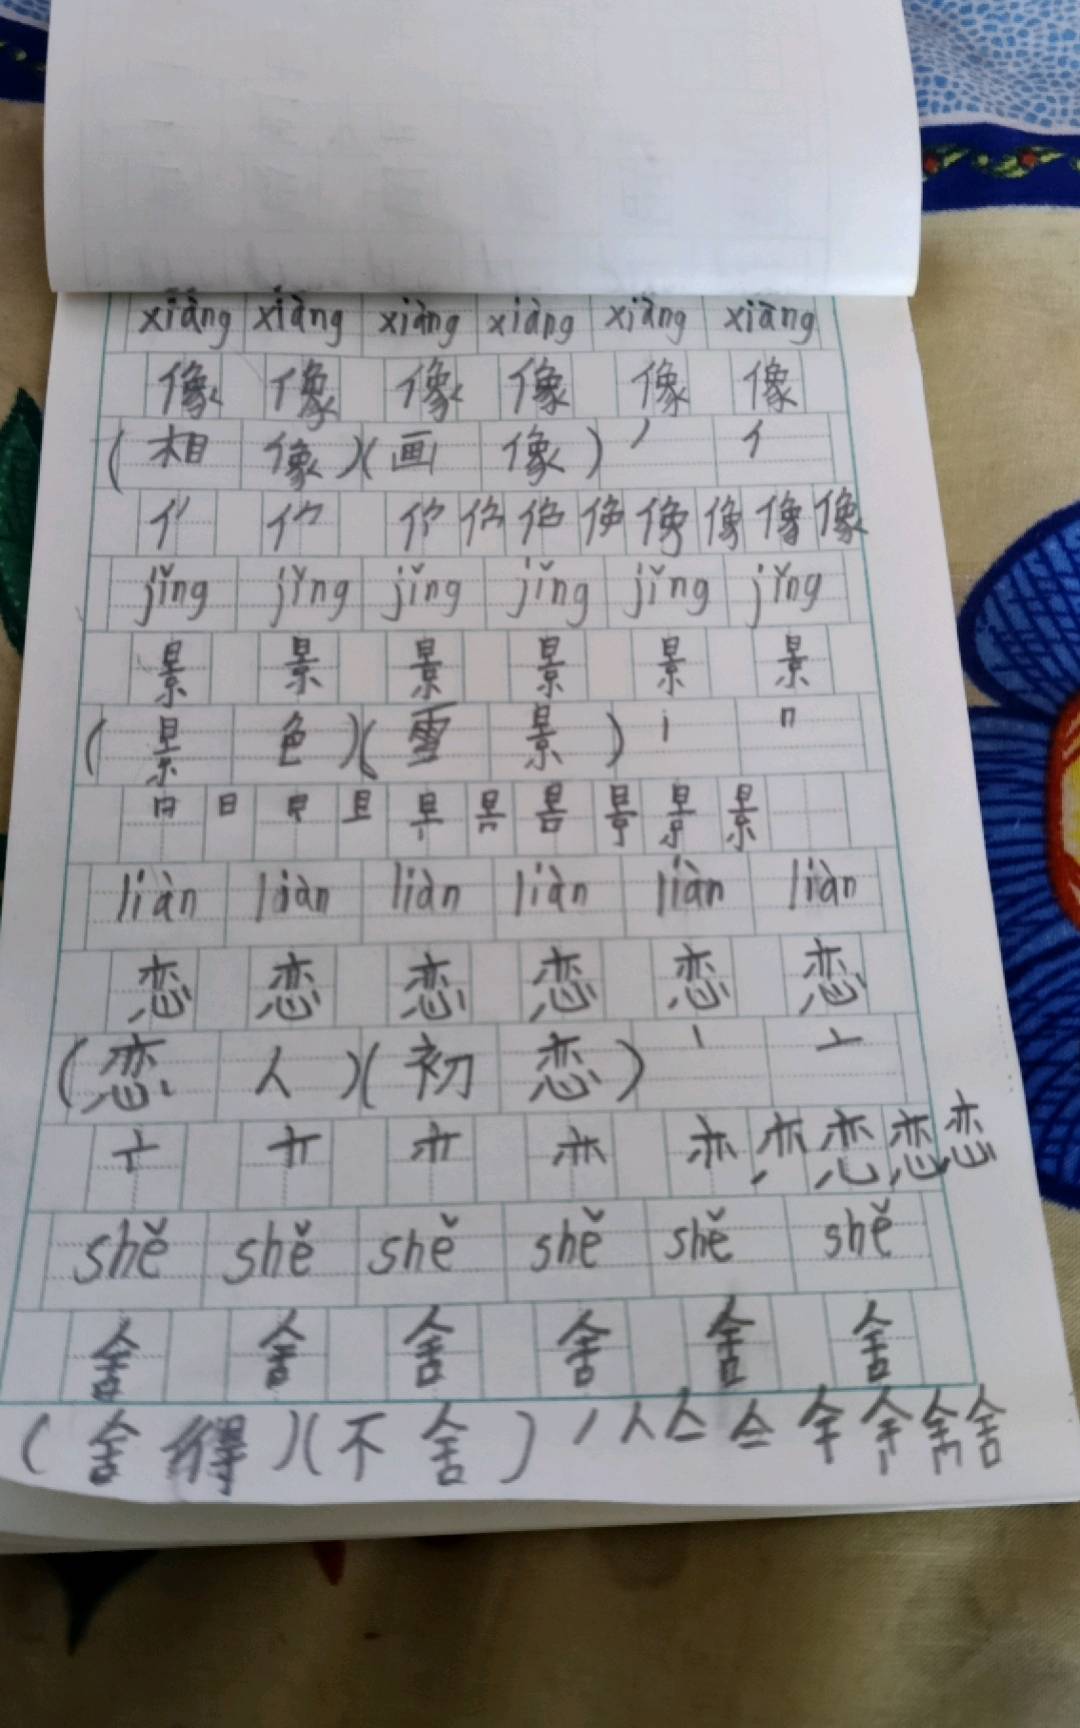 xiàng xiàng xiàng xiàng xiàng xiàng
像 像 像 像 像 像
(相像)(画像) 丿 亻
像
jǐng jǐng jǐng jǐng jǐng jǐng
景 景 景 景 景 景
(景色)(雪景) 丨 冂
日 日 旦 早 景 景
liàn liàn liàn liàn liàn liàn
恋 恋 恋 恋 恋 恋
(恋人)(初恋) 丶 亠
亦 恋 恋
shě shě shě shě shě shě
舍 舍 舍 舍 舍 舍
(舍得)(不舍) 丿 人 亼 舍